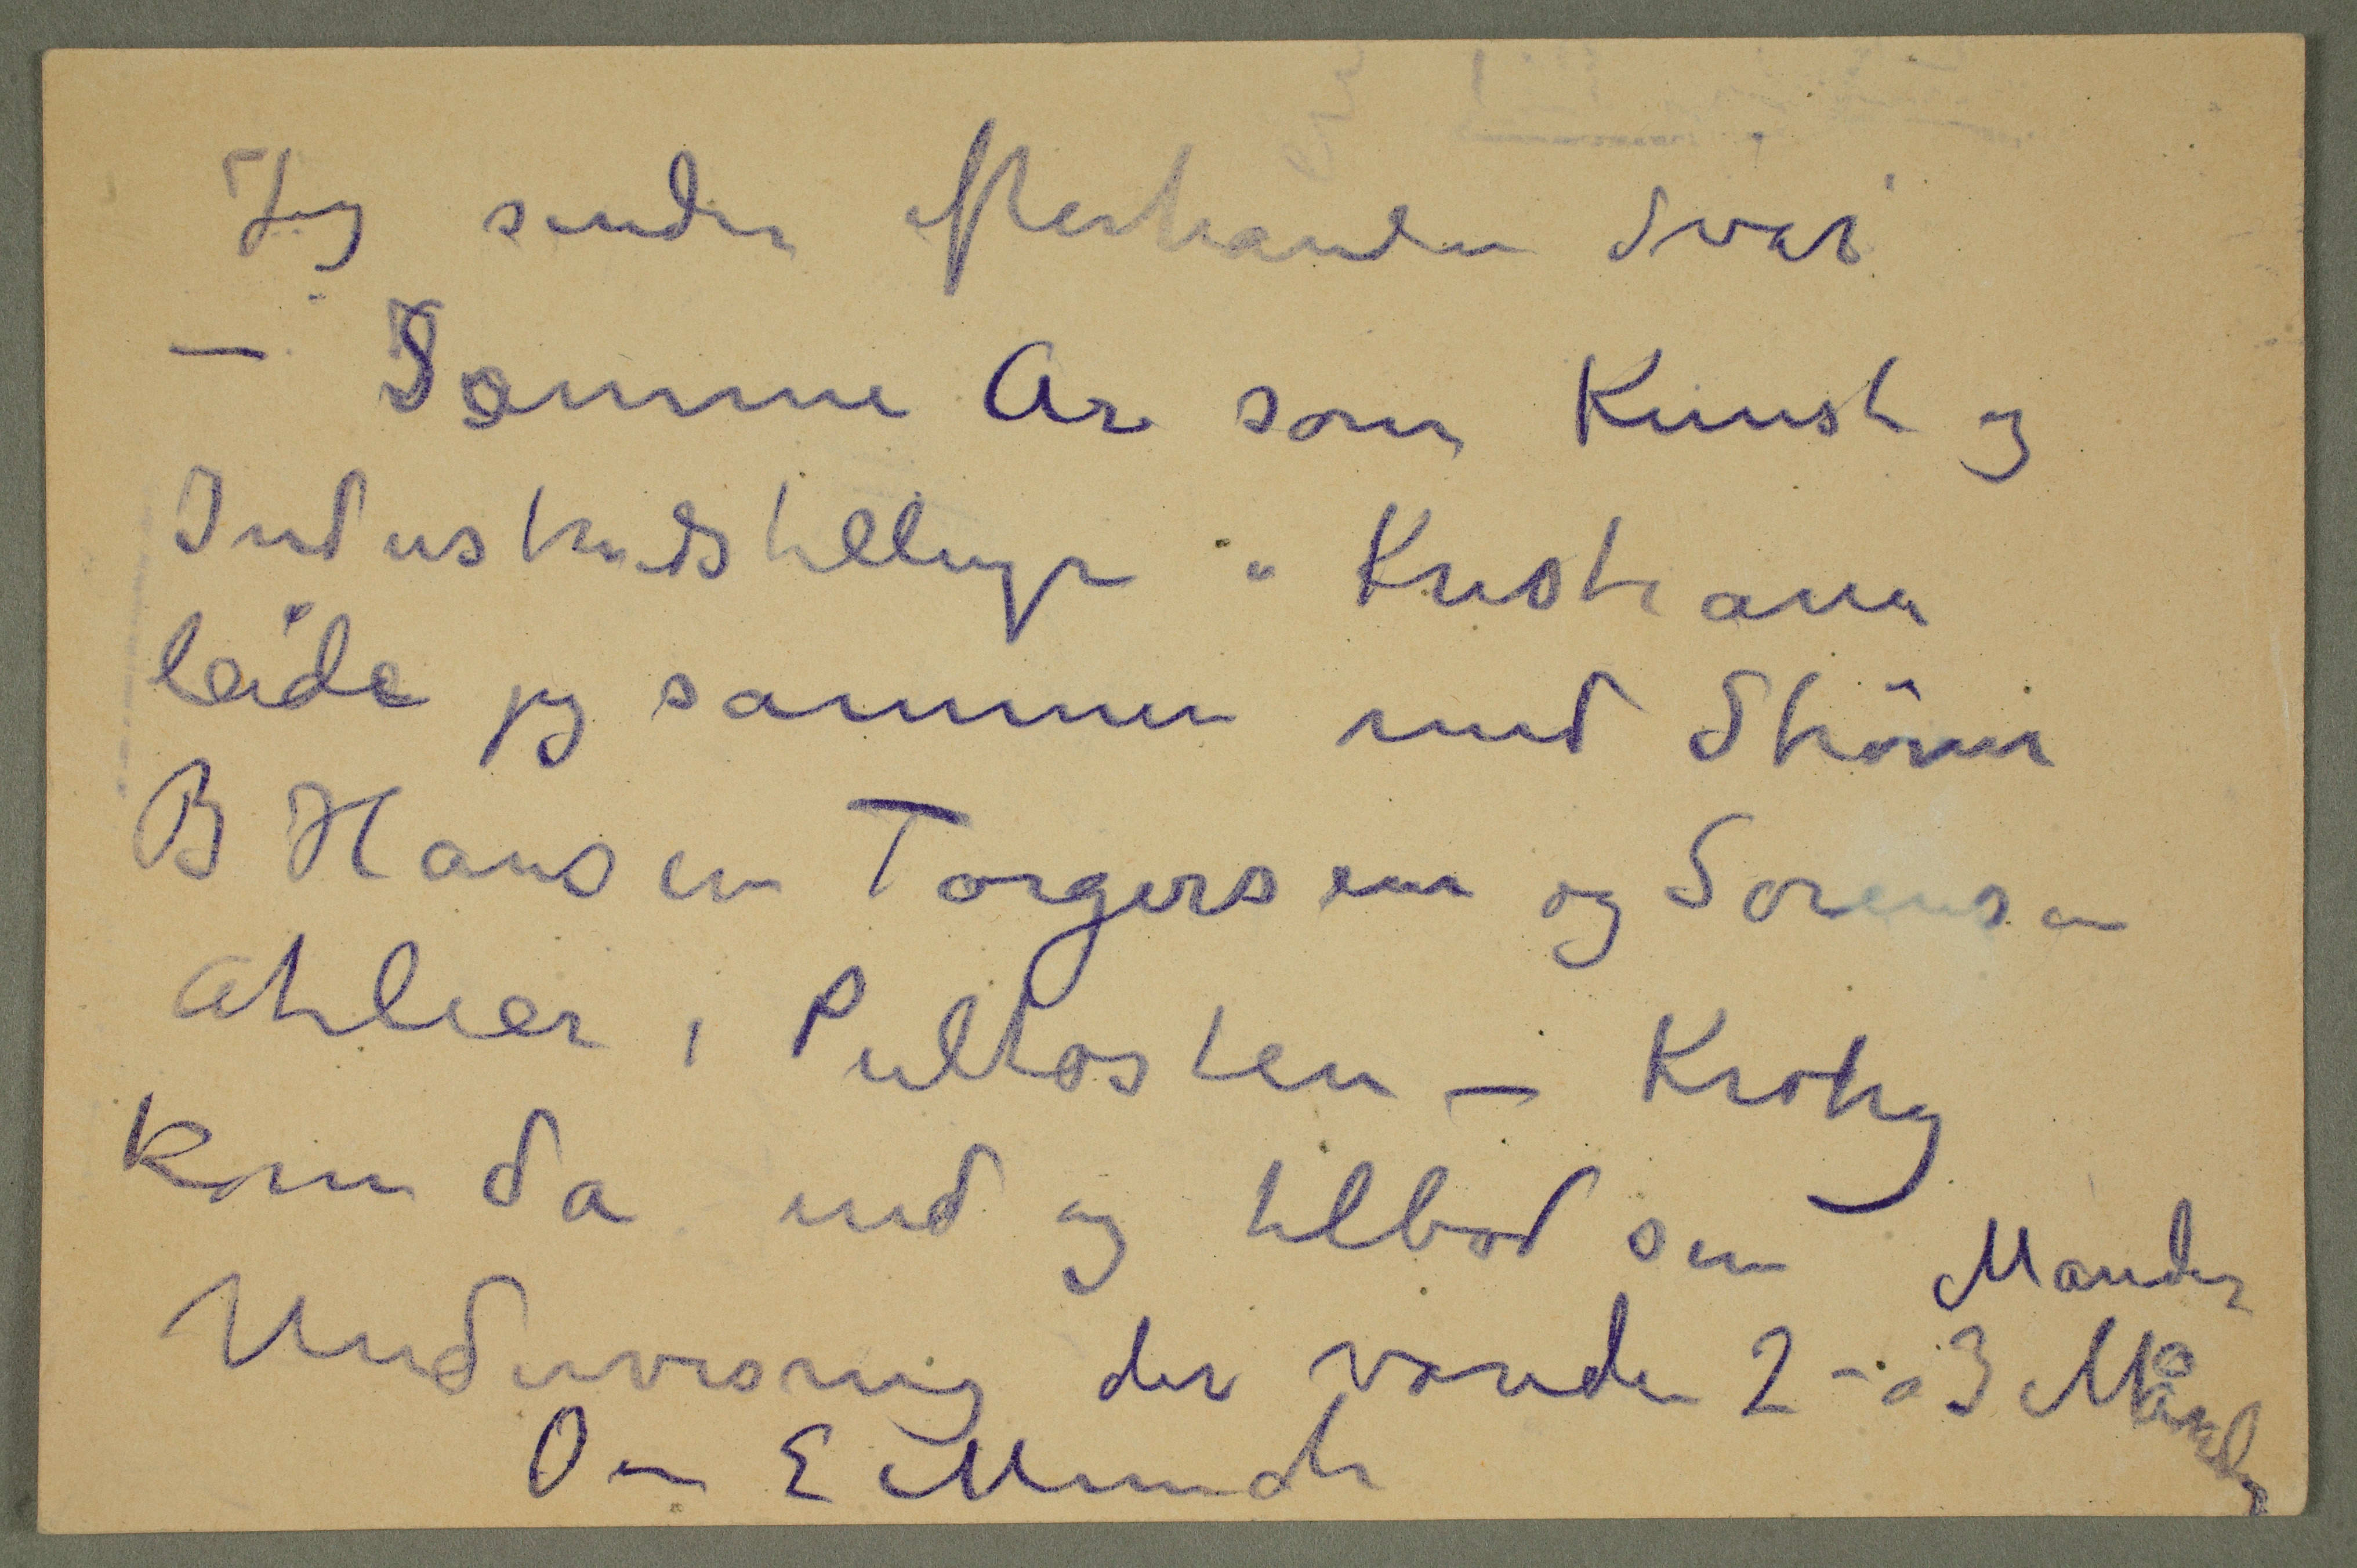 Jeg sender efterhanden Svar
– Samme Ar som Kunst og
Industriudstillingen i Kristiania
leiede jeg sammen med Strøm
B Hansen Torgersen og Sørensen
Atelier i Pultosten – Krohg
kom da ind og tilbød sin
Undervisning der varede 2 – a 3 Måneder
Måneder
Din E Munch